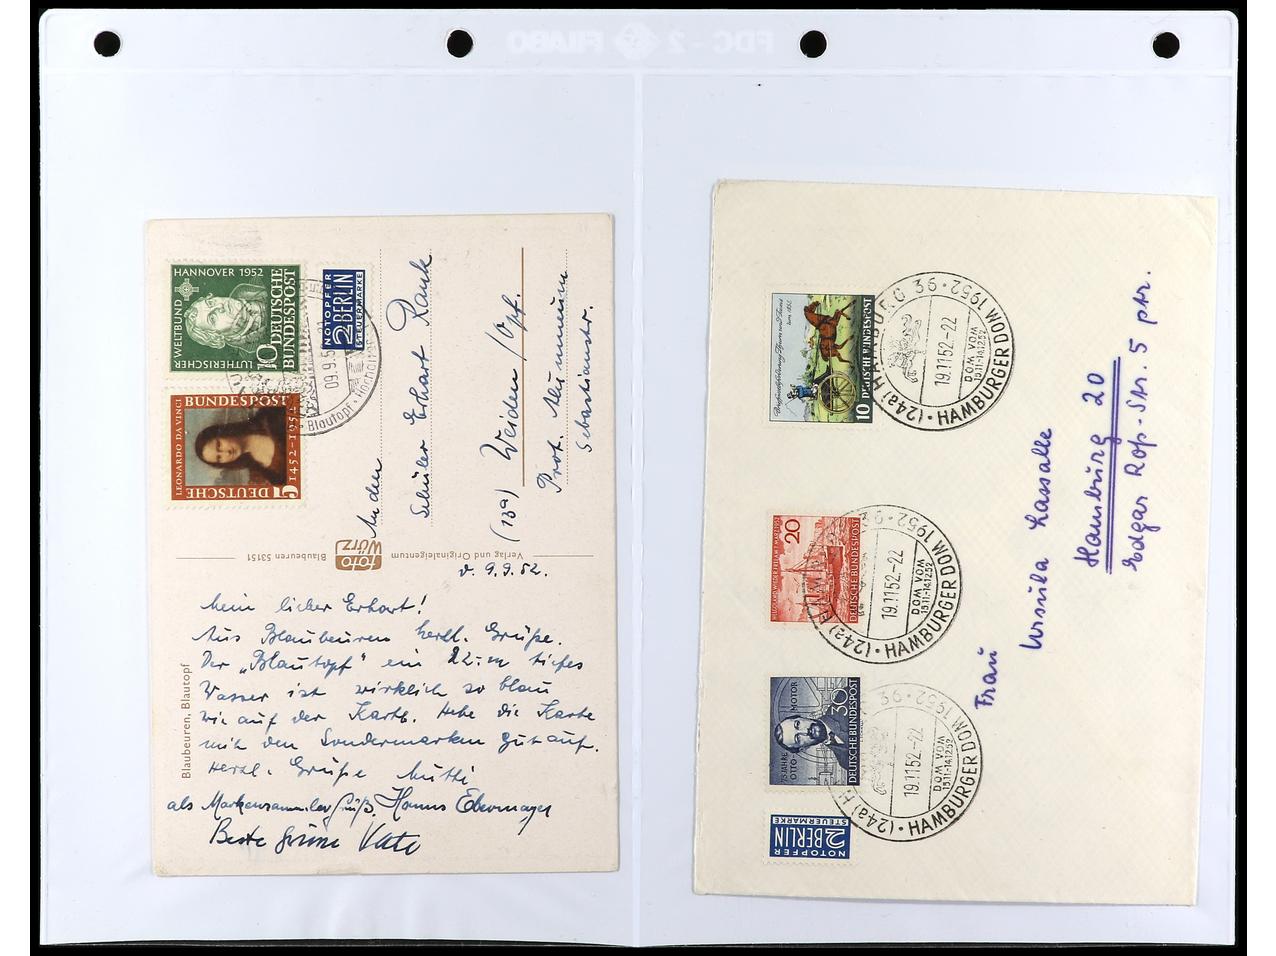 FDC - 2 FILABO
HANNOVER 1952
LUTHERISCHER WELTBUND
10 DEUTSCHE BUNDESPOST
NOTOPFER
2 BERLIN
STEUERMARKE
09.9.5
Blautopf · Hochal
LEONARDO DA VINCI
1452-1952
DEUTSCHE BUNDESPOST
5
An den
Schüler Erhart Rank
(13a) Weiden / Opf.
Prot. Alumneum
Sebastianstr.
Blaubeuren 53151
foto WÖRZ
Verlag und Originaleigentum
Blaubeuren, Blautopf
v. 9.9.52.
Mein lieber Erhart!
Aus Blaubeuren herzl. Grüße.
Der „Blautopf" ein 22-m tiefes
Wasser ist wirklich so blau
wie auf der Karte. Hebe die Karte
mit den Sondermarken gut auf.
Herzl. Grüße Mutti
als Markensammler Hanns Ebermayer
Beste Grüße Vati
10 DEUTSCHE BUNDESPOST
(24a) HAMBURG 36 · 1952
19.11.52.-22
DOM VOM
15.11.-14.12.52
HAMBURGER DOM
20
DEUTSCHE BUNDESPOST
(24a) HAMBURG 36 · 1952
19.11.52.-22
DOM VOM
15.11.-14.12.52
HAMBURGER DOM
75 JAHRE OTTO-MOTOR
30
DEUTSCHE BUNDESPOST
(24a) HAMBURG 36 · 1952
19.11.52.-22
DOM VOM
15.11.-14.12.52
HAMBURGER DOM
NOTOPFER
2 BERLIN
STEUERMARKE
Frau
Ursula Lassalle
Hamburg 20
Edgar Roß-Str. 5 ptr.